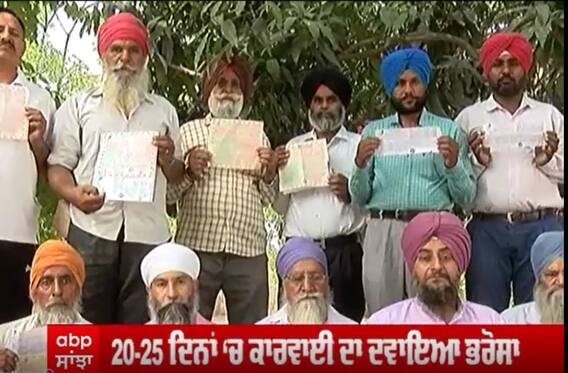 abp
ਸਾਂਝਾ
20-25 ਦਿਨਾਂ 'ਚ ਕਾਰਵਾਈ ਦਾ ਦਵਾਇਆ ਭਰੋਸਾ